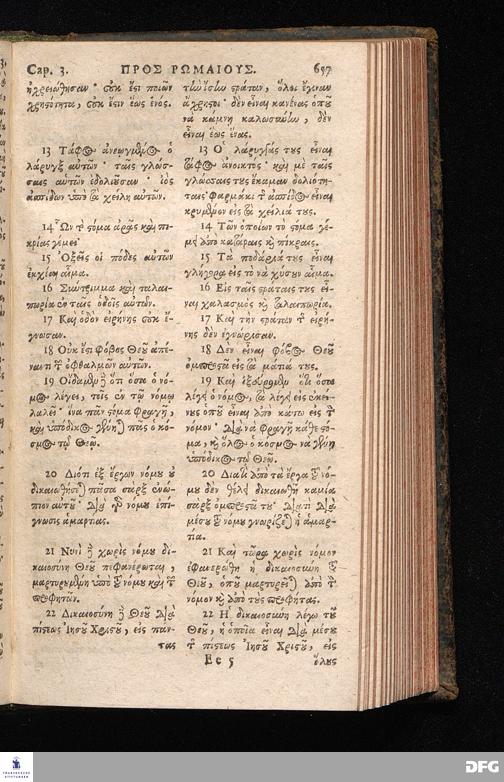 Cap. 3. ΠΡΟΣ ΡΩΜΑΙΟΥΣ. 657
ἠχρειώθησαν· οὐκ ἔστι ποιῶν
χρηστότητα, οὐκ ἔστιν ἕως ἑνός.
13 Τάφος ἀνεῳγμένος ὁ
λάρυγξ αὐτῶν· ταῖς γλώσ-
σαις αὐτῶν ἐδολιοῦσαν· ἰὸς
ἀσπίδων ὑπὸ τὰ χείλη αὐτῶν.
14 Ὧν τὸ στόμα ἀρᾶς καὶ πι-
κρίας γέμει·
15 Ὀξεῖς οἱ πόδες αὐτῶν
ἐκχέαι αἷμα.
16 Σύντριμμα καὶ ταλαι-
πωρία ἐν ταῖς ὁδοῖς αὐτῶν.
17 Καὶ ὁδὸν εἰρήνης οὐκ ἔ-
γνωσαν.
18 Οὐκ ἔστι φόβος Θεοῦ ἀπέ-
ναντι τῶν ὀφθαλμῶν αὐτῶν.
19 Οἴδαμεν δὲ ὅτι ὅσα ὁ νό-
μος λέγει, τοῖς ἐν τῷ νόμῳ
λαλεῖ· ἵνα πᾶν στόμα φραγῇ,
καὶ ὑπόδικος γένηται πᾶς ὁ κό-
σμος τῷ Θεῷ.
20 Διότι ἐξ ἔργων νόμου οὐ
δικαιωθήσεται πᾶσα σὰρξ ἐνώ-
πιον αὐτοῦ· διὰ γὰρ νόμου ἐπί-
γνωσις ἁμαρτίας.
21 Νυνὶ δὲ χωρὶς νόμου δι-
καιοσύνη Θεοῦ πεφανέρωται,
μαρτυρουμένη ὑπὸ τοῦ νόμου καὶ τῶν
προφητῶν.
22 Δικαιοσύνη δὲ Θεοῦ διὰ
πίστεως Ἰησοῦ Χριστοῦ, εἰς πάν-
τας
τὴν ἴσην στράταν, ὅλοι ἔγιναν
ἄχρηστοι· δὲν εἶναι κανένας ὁποῦ
νὰ κάμνῃ καλωσύνην, δὲν
εἶναι ἕως ἕνας.
13 Ὁ λάρυγγάς τους εἶναι
τάφος ἀνοικτός· καὶ μὲ ταῖς
γλώσσαις τους ἔκαμαν δολιότη-
ταις· φαρμάκι τῶν ἀσπίδων εἶναι
κρυμμένον εἰς τὰ χείλιά τους.
14 Τῶν ὁποίων τὸ στόμα γέ-
μει ἀπὸ κατάραις καὶ πίκραις.
15 Τὰ ποδάριά τους εἶναι
γλήγορα εἰς τὸ νὰ χύσουν αἷμα.
16 Εἰς ταῖς στράταις τους εἶ-
ναι χαλασμὸς καὶ ταλαιπωρία.
17 Καὶ τὴν στράταν τῆς εἰρή-
νης δὲν ἐγνώρισαν.
18 Δὲν εἶναι φόβος Θεοῦ
ὀμπροστὰ εἰς τὰ μάτιά τους.
19 Καὶ ἐξεύρομεν ὅτι ὅσα
λέγει ὁ νόμος, τὰ λέγει εἰς ἐκεί-
νους ὁποῦ εἶναι ἀπὸ κάτω εἰς τὸν
νόμον· διὰ νὰ φραγῇ κάθε στό-
μα, καὶ ὅλος ὁ κόσμος νὰ γένῃ
ὑπόδικος τῷ Θεῷ.
20 Διατὶ ἀπὸ τὰ ἔργα τοῦ νό-
μου δὲν θέλει δικαιωθῆ καμία
σὰρξ ὀμπροστά του· διατὶ διὰ
μέσου τοῦ νόμου γνωρίζεται ἡ ἁμαρ-
τία.
21 Καὶ τώρα χωρὶς νόμον
ἐφανερώθη ἡ δικαιοσύνη τοῦ
Θεοῦ, ὁποῦ μαρτυρεῖται ἀπὸ τὸν
νόμον καὶ ἀπὸ τοὺς προφήτας.
22 Ἡ δικαιοσύνη λέγω τοῦ
Θεοῦ, ἡ ὁποία εἶναι διὰ μέσου
τῆς πίστεως Ἰησοῦ Χριστοῦ, εἰς
Ee 5 ὅλους
FRANCKESCHE
STIFTUNGEN
DFG